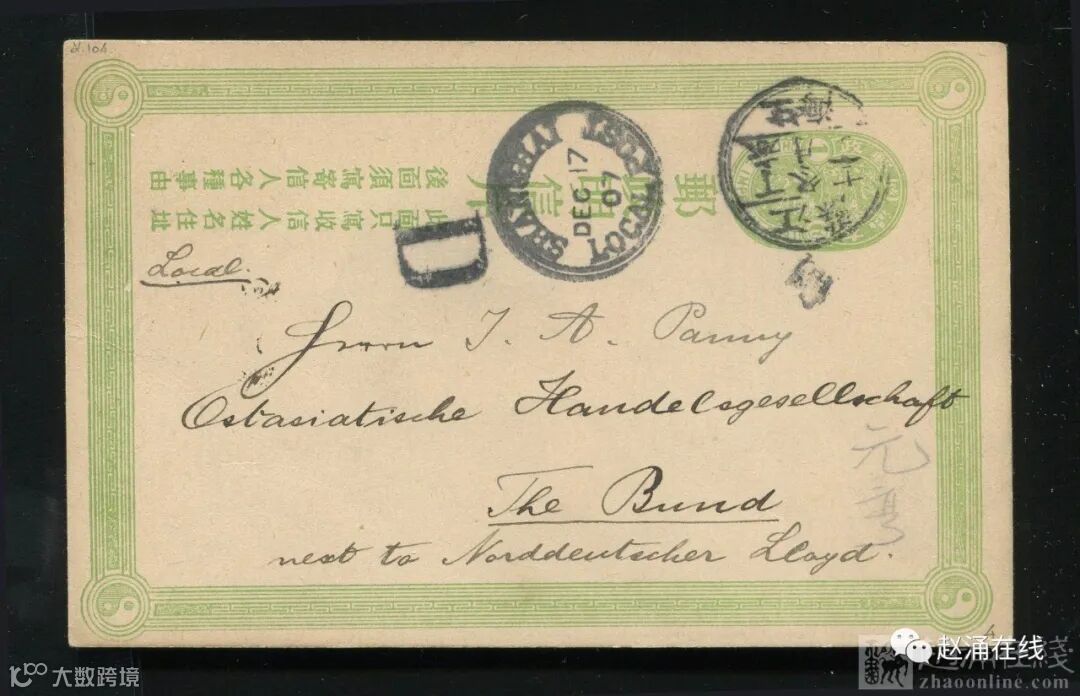 d.104
後面須寫寄信人各種事由
此面只寫收信人姓名住址
郵
信
SHANGHAI
LOCAL POST
DEC 17
07
D
Local.
Herrn J. A. Panny
Ostasiatische Handelsgesellschaft
The Bund
next to Norddeutscher Lloyd.
元亨
大数跨境
赵涌在线
zhaoonline.com